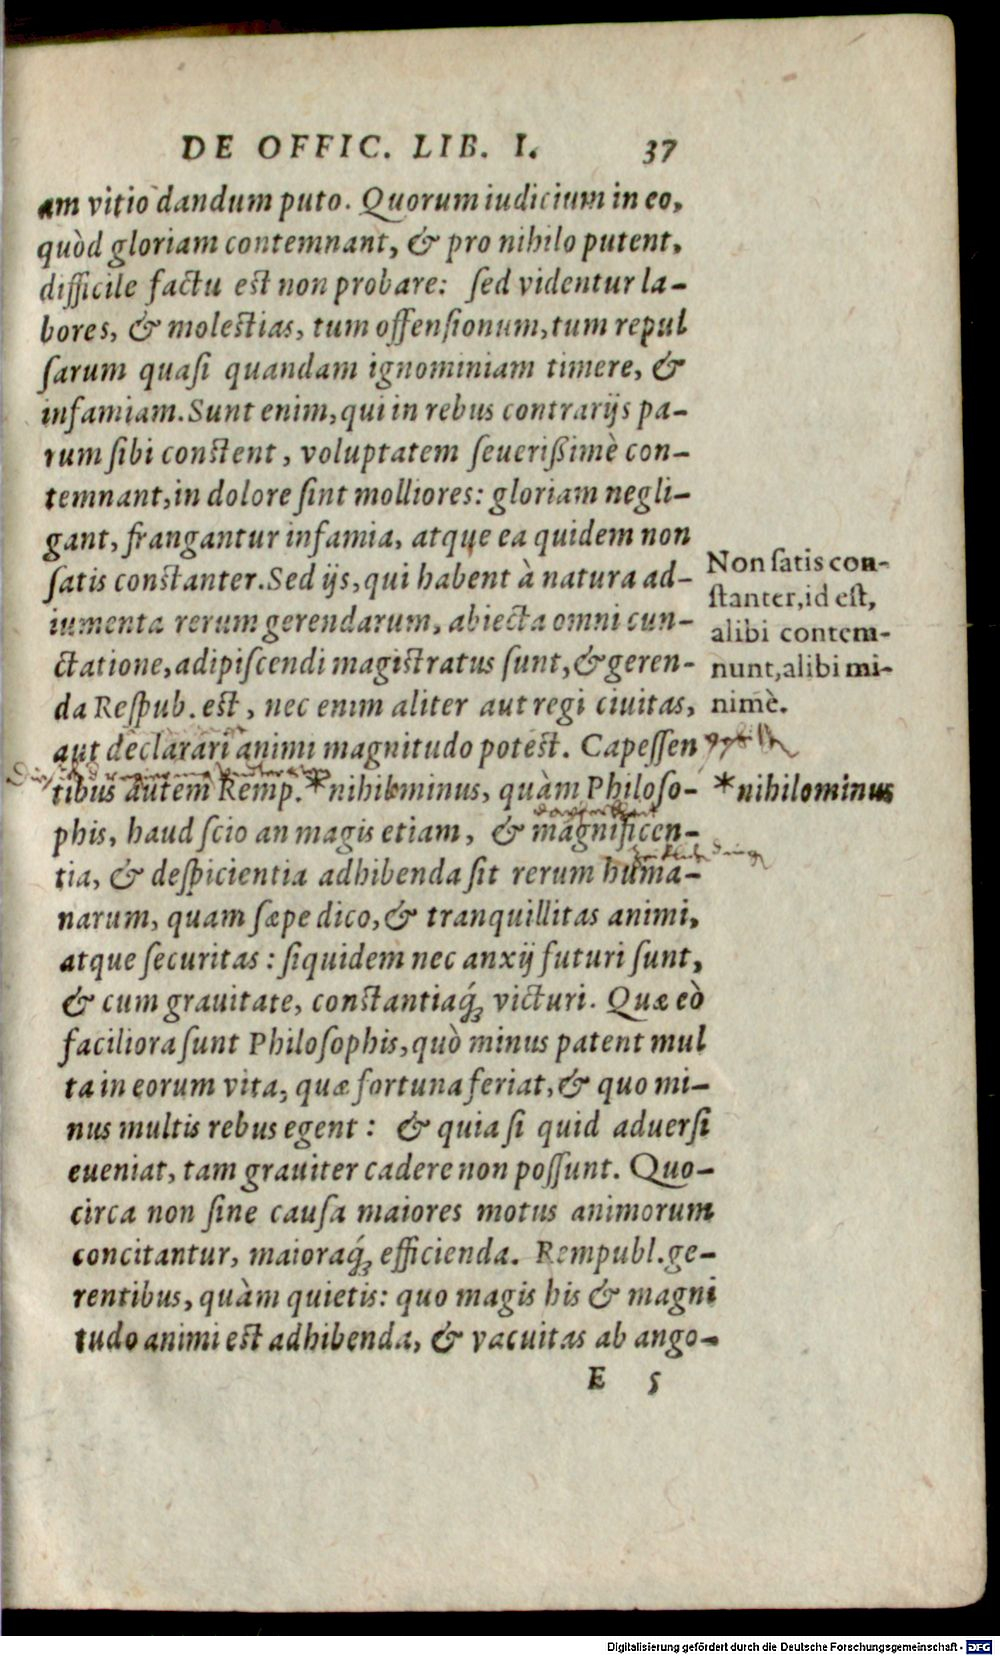 DE OFFIC. LIB. I. 37
am vitio dandum puto. Quorum iudicium in eo,
quòd gloriam contemnant, & pro nihilo putent,
difficile factu est non probare: sed videntur la-
bores, & molestias, tum offensionum, tum repul
sarum quasi quandam ignominiam timere, &
infamiam. Sunt enim, qui in rebus contrarijs pa-
rum sibi constent, voluptatem seuerißimè con-
temnant, in dolore sint molliores: gloriam negli-
gant, frangantur infamia, atque ea quidem non
satis constanter. Sed ijs, qui habent à natura ad-
iumenta rerum gerendarum, abiecta omni cun-
ctatione, adipiscendi magistratus sunt, & geren-
da Respub. est, nec enim aliter aut regi ciuitas,
aut declarari animi magnitudo potest. Capessen
tibus autem Remp. *nihilominus, quàm Philoso-
phis, haud scio an magis etiam, & magnificen-
tia, & despicientia adhibenda sit rerum huma-
narum, quam sæpe dico, & tranquillitas animi,
atque securitas: siquidem nec anxij futuri sunt,
& cum grauitate, constantiaq́; victuri. Quæ eò
faciliora sunt Philosophis, quò minus patent mul
ta in eorum vita, quæ fortuna feriat, & quo mi-
nus multis rebus egent: & quia si quid aduersi
eueniat, tam grauiter cadere non possunt. Quo-
circa non sine causa maiores motus animorum
concitantur, maioraq́; efficienda. Rempubl. ge-
rentibus, quàm quietis: quo magis his & magni
tudo animi est adhibenda, & vacuitas ab ango-
E 5
Non satis con-
stanter, id est,
alibi contem-
nunt, alibi mi-
nimè.
*nihilominus
Digitalisierung gefördert durch die Deutsche Forschungsgemeinschaft - DFG